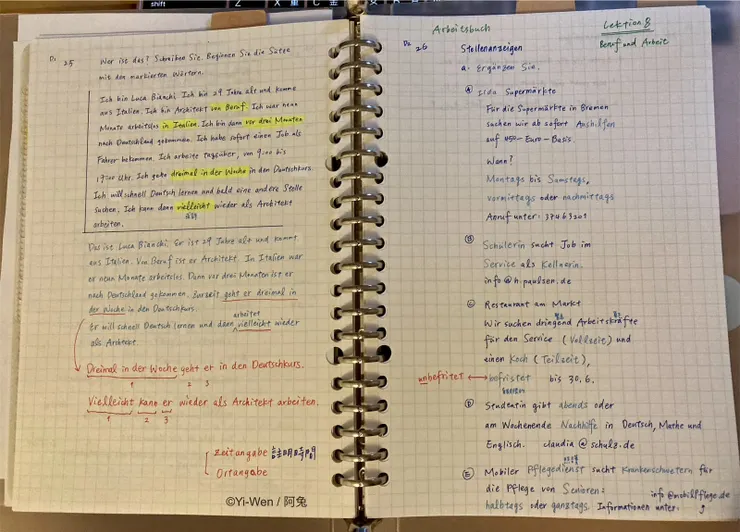 shift
D2 25
Wer ist das? Schreiben Sie. Beginnen Sie die Sätze
mit den markierten Wörtern.
Ich bin Luca Bianchi. Ich bin 29 Jahre alt und komme
aus Italien. Ich bin Architekt von Beruf. Ich war neun
Monate arbeitslos in Italien. Ich bin dann vor drei Monaten
nach Deutschland gekommen. Ich habe sofort einen Job als
Fahrer bekommen. Ich arbeite tagsüber, von 9:00 bis
Uhr. Ich gehe dreimal in der Woche in den Deutschkurs.
Ich will schnell Deutsch lernen und bald eine andere Stelle
suchen. Ich kann dann vielleicht wieder als Architekt
arbeiten.
Das ist Luca Bianchi. Er ist 29 Jahre alt und kommt
aus Italien. Von Beruf ist er Architekt. In Italien war
er neun Monate arbeitslos. Dann vor drei Monaten ist er
nach Deutschland gekommen. Zurzeit geht er dreimal in
der Woche in den Deutschkurs.
arbeitet
Er will schnell Deutsch lernen und dann vielleicht wieder
als Architekt.
Dreimal in der Woche geht er in den Deutschkurs.
1 2 3
Vielleicht kann er wieder als Architekt arbeiten.
1 2 3
Zeitangabe 說明時間
Ortangabe
©Yi-Wen / 阿兔
Arbeitsbuch
Lektion 8
Beruf und Arbeit
D2 26
Stellenanzeigen
a. Ergänzen Sie.
A Ilda Supermärkte
Für die Supermärkte in Bremen
suchen wir ab sofort Aushilfen
auf 450-Euro-Basis.
Wann?
Montags bis Samstags,
vormittags oder nachmittags
Anruf unter: 37463201
B Schülerin sucht Job im
Service als Kellnerin.
info@h.paulsen.de
C Restaurant am Markt
Wir suchen dringend Arbeitskräfte
für den Service (Vollzeit) und
einen Koch (Teilzeit),
unbefritet befristet bis 30.6.
D Studentin gibt abends oder
am Wochenende Nachhilfe in Deutsch, Mathe und
Englisch. claudia@schulz.de
E Mobiler Pflegedienst sucht Krankenschwetern für
die Pflege von Senioren:
halbtags oder ganztags. Informationen unter:
info@mobilpflege.de